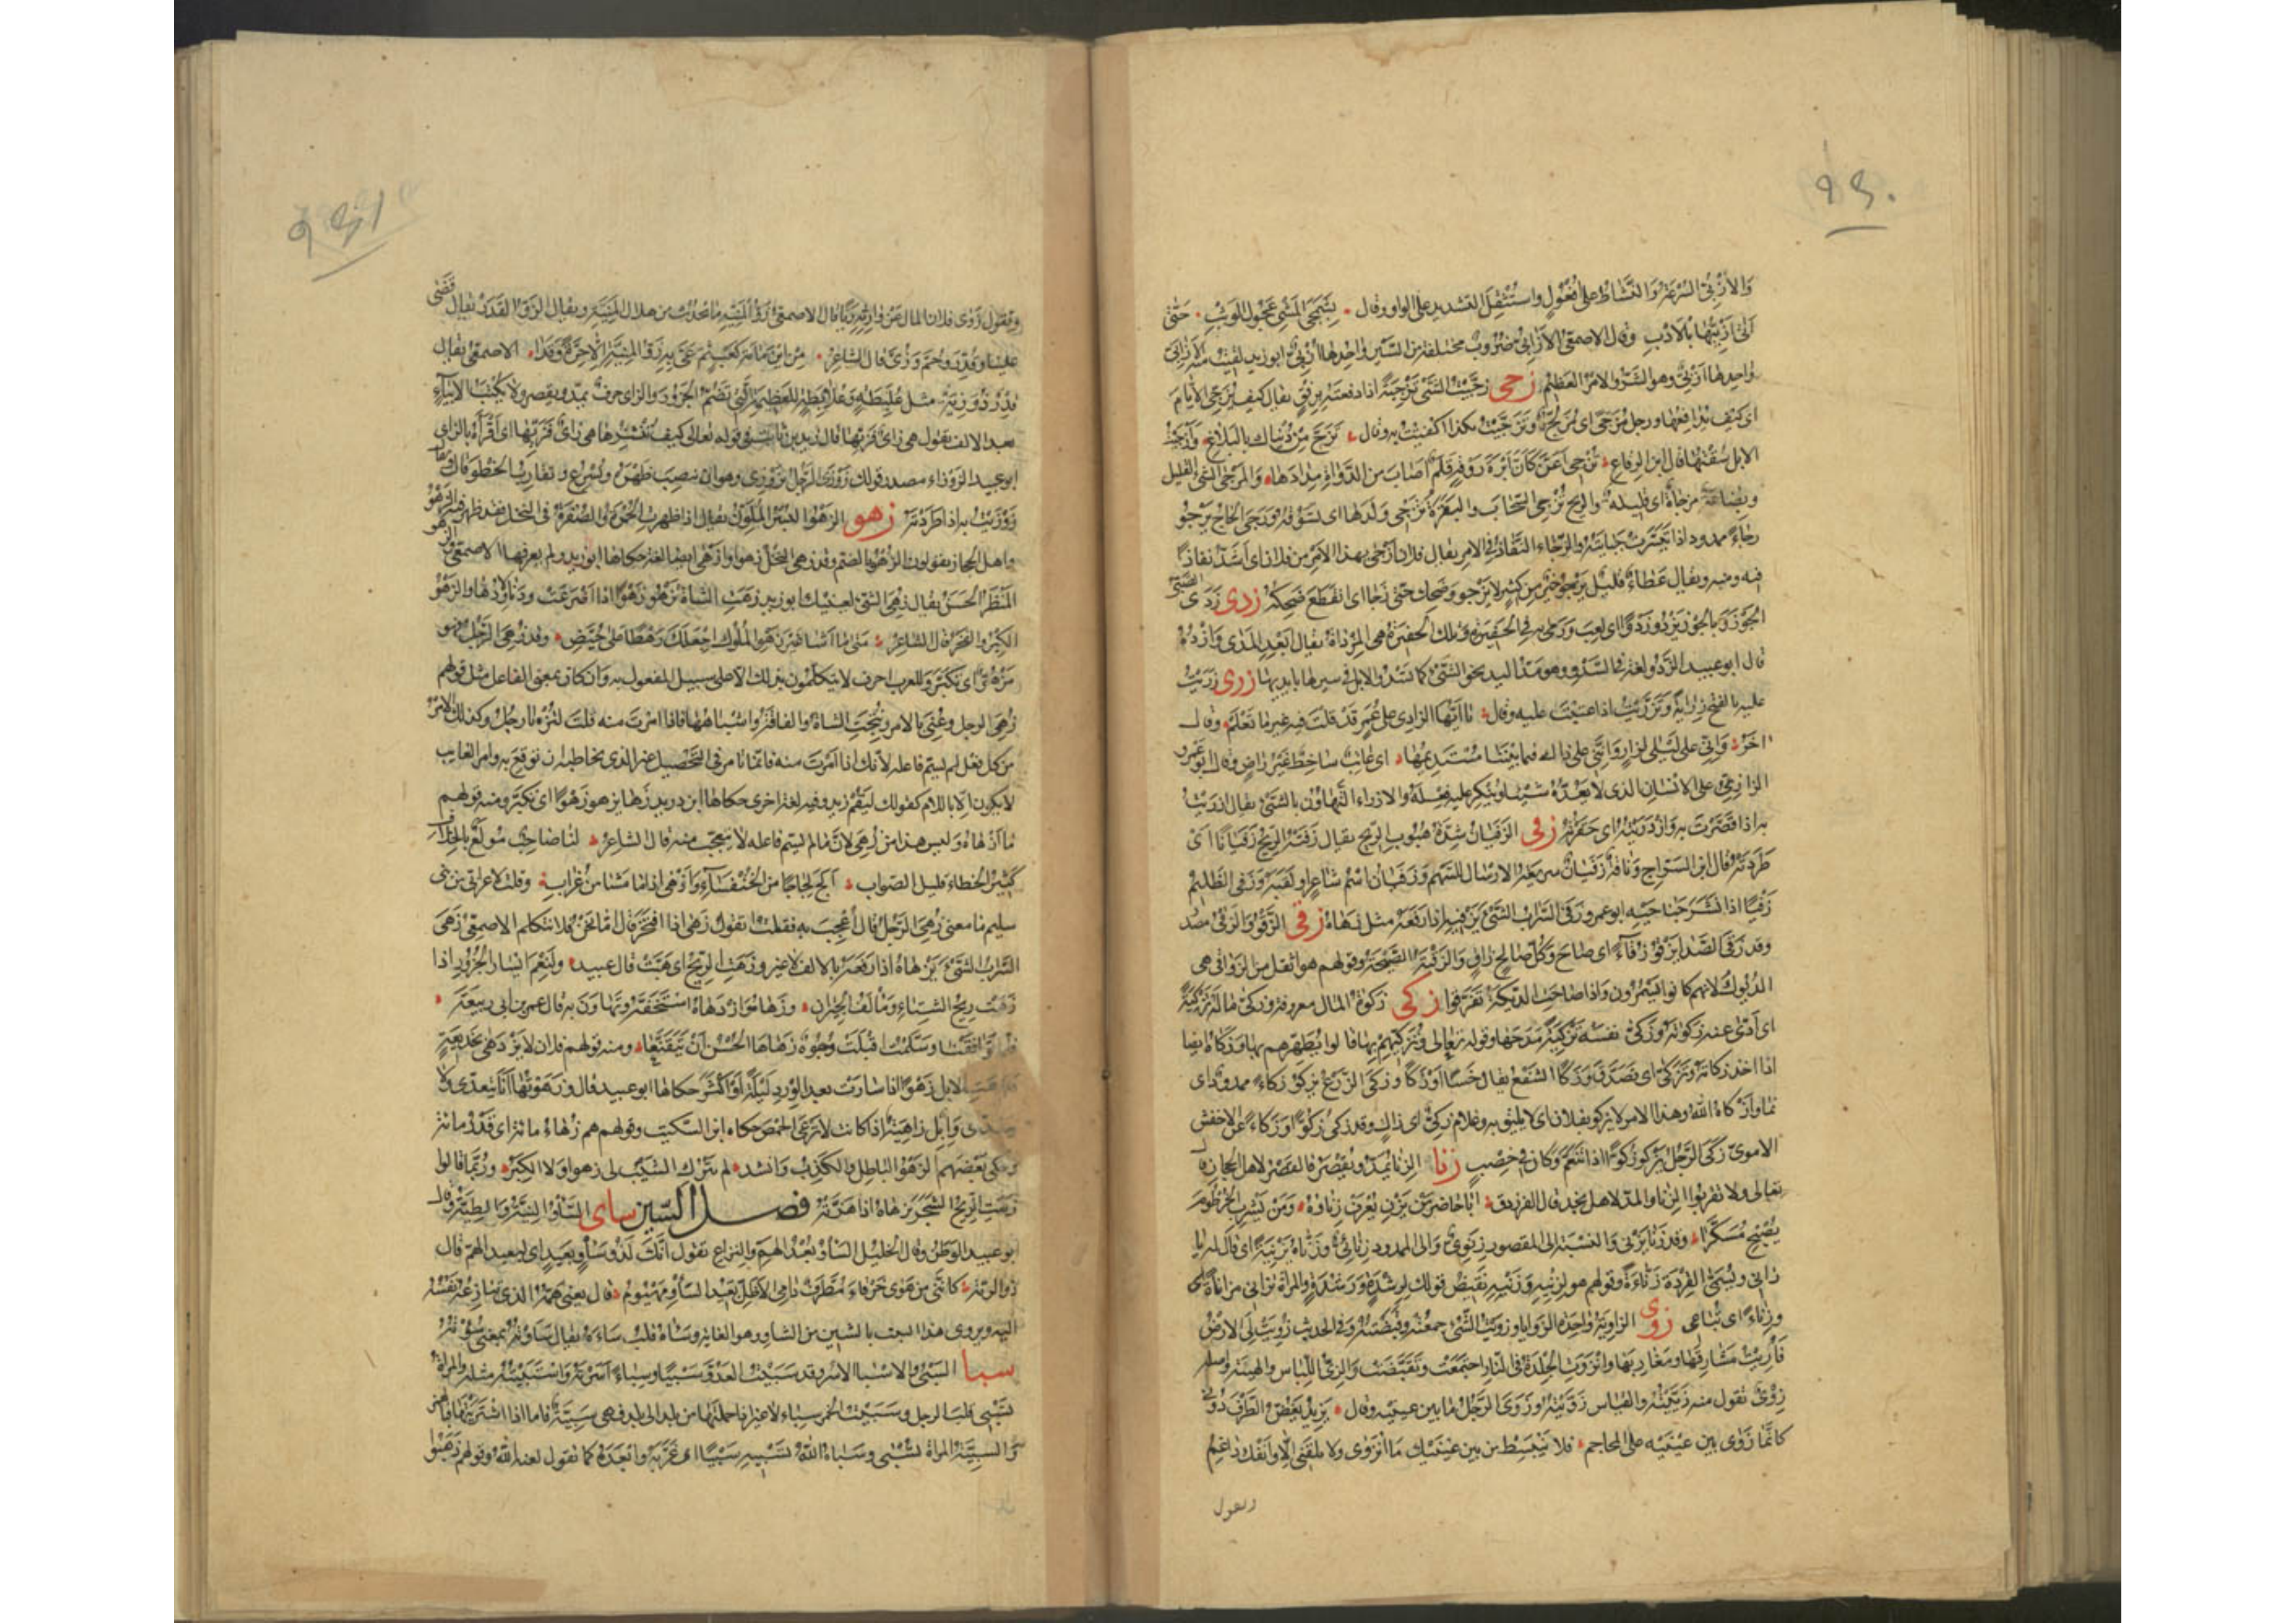 ٩٤٠
والأزبي السرعة والنشاط على أفعول واستثقل التشديد على الواو وقال بشمجى المشي عجول الوثب حتى
أتى أزبيها بالادب وقال الاصمعي الازابي ضروب مختلفة من السير واحدها أزبي ابو زيد لقيت منه الازابي
واحدها أزبي وهو الشر والامر العظيم زجى زجيت الشئ تزجية اذا دفعته برفق يقال كيف تزجى الأيام
اى كيف تدافعها ورجل مزجى اى مزلج وتزجيت بكذا اكتفيت به وقال تزج من دنياك بالبلاغ وأزجيت
الابل سقتها قال ابن الرقاع تزجى أغن كأن ابرة روقه قلم أصاب من الدواة مدادها والمزجى الشئ القليل
وبضاعة مزجاة اى قليلة والريح تزجى السحاب والبقرة تزجى ولدها اى تسوقه وزجى الخراج يزجو
زجاء ممدود اذا تيسرت جبايته والزجاء النفاذ في الامر يقال فلان أزجى بهذا الامر من فلان اى أشد نفاذا
فيه ومنه ويقال عطاء قليل يزجو خير من كثير لا يزجو وضحك حتى زجا اى انقطع ضحكه زدى زدى الصبي
الجوز وبالجوز يزدو زدوا اى لعب ورمى به في الحفيرة وتلك الحفيرة هي المزداة يقال أبعد المدى وازده
قال ابو عبيد الزدو لغة في السدو وهو مد اليد نحو الشئ كما تسدو الابل في سيرها بايديها زرى زريت
عليه بالفتح زراية وتزريت اذا عتبت عليه وقال يا أيها الزارى على عمر قد قلت فيه غير ما تعلم وقال
اخر وانى على ليلى لزار واننى على ذاك فيما بيننا مستديمها اى عاتب ساخط غير راض وقال ابو عمرو
الزارى على الانسان الذى لا يعده شيئا وينكر عليه فعله والازراء التهاون بالشئ يقال ازريت
به اذا قصرت به وازدريته اى حقرته زفى الزفيان شدة هبوب الريح يقال زفته الريح زفيانا اى
طردته وقال ابن السراج وناقة زفيان سريعة الارسال للسهم وزفيان اسم شاعر او لقبه وزفى الظليم
زفيا اذا نشر جناحيه ابو عمرو زفى السراب الشئ يزفيه اذا رفعه مثل زهاه زقى الزقو والزقى مصدر
وقد زقى الصدا يزقو زقاء اى صاح وكل صائح زاق والزقية الصيحة وقولهم هو أثقل من الزواقى هي
الديوك لانهم كانوا يسمرون واذا صاحت الديكة تفرقوا زكى زكوة المال معروفة وزكى ماله تزكية
اى أدى عنه زكوته وزكى نفسه تزكية مدحها وقوله تعالى وتزكيهم بها قالوا تطهرهم بها وزكاه ايضا
اذا اخذ زكاته وتزكى اى تصدق وزكا الشفع يقال خسا او زكا وزكى الزرع يزكو زكاء ممدود اى
نما وأزكاه الله وهذا الامر لا يزكو بفلان اى لا يليق به وغلام زكى اى زاك وقد زكى زكوا وزكاء عن الاخفش
الاموى زكى الرجل يزكو زكوا اذا تنعم وكان في خصب زنا الزنا يمد ويقصر فالقصر لاهل الحجاز قال
تعالى ولا تقربوا الزنا والمد لاهل نجد قال الفرزدق أبا حاضر من يزن يعرف زناؤه ومن يشرب الخرطوم
يصبح مسكرا وقد زنا يزنى والنسبة الى المقصور زنوى والى الممدود زنائى وزناه تزنية اى قال له يا
زانى وتسمى القردة زناءة وقولهم هو لزنية وزنية نقيض قولك لرشدة ورشدة والمرأة تزانى مزاناة
وزناء اى تباغى زوى الزاوية واحدة الزوايا وزويت الشئ جمعته وقبضته وفي الحديث زويت لى الارض
فأريت مشارقها ومغاربها وانزوت الجلدة في النار اجتمعت وتقبضت والزى اللباس والهيئة واصله
زوى تقول منه زييته والقياس زويته وزوى الرجل ما بين عينيه وقال يزيد يغض الطرف دونى
كانما زوى بين عينيه على المحاجم فلا ينبسط من بين عينيك ما انزوى ولا تلقنى الا وانفك راغم
وتقول
٩٤١
وتقول زوى فلان المال عن وارثه زيا قال الاصمعي زو المنية ما يحدث من هلاك المنية ويقال الزو القدر يقال قضى
علينا وقدر وحم وزى قال الشاعر من ابن مامة كعب ثم عى به زو المنية الا حرة وقدا الاصمعي يقال
قدر زوزية مثل علبطة وعلابطة للعظيمة التى تضم الجزور والزاى حرف يمد ويقصر ولا يكتب الا بياء
بعد الالف تقول هي زاى فزيها قال زيد بن ثابت في قوله تعالى كيف ننشزها هي زاى فزيها اى اقرأه بالزاى
ابو عبيد الزوزاء مصدر قولك زوزى الرجل يزوزى وهو ان ينصب ظهره ويسرع وتقارب الخطو قال ويقال
زوزيت به اذا طردته زهو الزهو البسر الملون يقال اذا ظهرت الحمرة والصفرة في النخل فقد ظهر فيه الزهو
واهل الحجاز يقولون الزهو بالضم وقد زهى النخل زهوا وازهى ايضا لغة حكاها ابو زيد ولم يعرفها الاصمعي والزهو
المنظر الحسن يقال زهى الشئ لعينيك ابو زيد زهت الشاة تزهو زهوا اذا اضرعت ودنا ولادها والزهو
الكبر والفخر قال الشاعر متى ما أشأ غير زهو الملوك اجعلك رهطا على حيض وقد زهى الرجل فهو
مزهو اى تكبر وللعرب احرف لا يتكلمون بها الا على سبيل المفعول به وان كان بمعنى الفاعل مثل قولهم
زهى الرجل وعنى بالامر ونتجت الشاة والناقة واشباهها فاذا امرت منه قلت لتزه يا رجل وكذلك الامر
من كل فعل لم يسم فاعله لأنك اذا أمرت منه فانما تأمر في التحصيل غير الذى تخاطبه ان توقع به وامر الغايب
لا يكون الا باللام كقولك ليقم زيد وفيه لغة اخرى حكاها ابن دريد زها يزهو زهوا اى تكبر ومنه قولهم
ما أزهاه وليس هذا من زهى لان ما لم يسم فاعله لا يتعجب منه قال الشاعر لنا صاحب مولع بالخلاف
كثير الخطاء قليل الصواب ألج لجاجا من الخنفساء وأزهى اذا ما مشا من غراب وقلت لاعرابى من بنى
سليم ما معنى زهى الرجل قال أعجب به فقلت اتقول زهى اذا افتخر قال اما نحن فلا نتكلم الاصمعي زهى
السراب الشئ يزهاه اذا رفعه بالالف لا غير وزهت الريح اى هبت قال عبيد ولنعم أيسار الجزور اذا
زهت ريح الشتاء ومألف الجيران وزهاه وازدهاه استخفه وتهاون به قال عمر بن ابى ربيعة
فلما تواقفنا وسلمت أقبلت وجوه زهاها الحسن أن تتقنعا ومنه قولهم فلان لا يزدهى بخديعة
وزهت الابل زهوا اذا سارت بعد الورد ليلة او اكثر حكاها ابو عبيد قال وزهوتها أنا يتعدى ولا
يتعدى وابل زاهية اذا كانت لا ترعى الحمض حكاه ابن السكيت وقولهم هم زهاء مائة اى قدر مائة
وحكى بعضهم الزهو الباطل والكذب وانشد لم يترك الشيب لى زهوا ولا الكبر وربما قالوا
زهت الريح الشجر تزهاه اذا هزته فصل السين ساى الساو النية والطية وقال
ابو عبيد الوطن وقال الخليل السأو بعد الهم والنزاع تقول انك لذو سأو بعيد اى لبعيد الهم قال
ذو الرمة كاننى من هوى خرقاء مطرف دامى الأظل بعيد السأو مهيوم قال يعنى همه الذى تنازعه نفسه
اليه ويروى هذا البيت بالشين من الشاو وهو الغاية وساه قلب ساءه يقال سأوته بمعنى سؤته
سبا السبى والاسبا الاسر وقد سبيت العدو سبيا وسباء أسرته واستبيته مثله والمرأة
تسبى قلب الرجل وسبيت الخمر سباء لا غير اذا حملتها من بلد الى بلد فهى سبية فاما اذا اشتريتها
والسبية المرأة تسبى وسباه الله يسبيه سبيا اى غربه وابعده كما تقول لعنه الله وقولهم ذهبوا